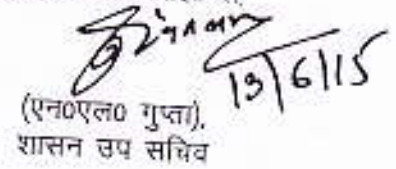 13/6/15
(एन0एल0 गुप्ता),
शासन उप सचिव